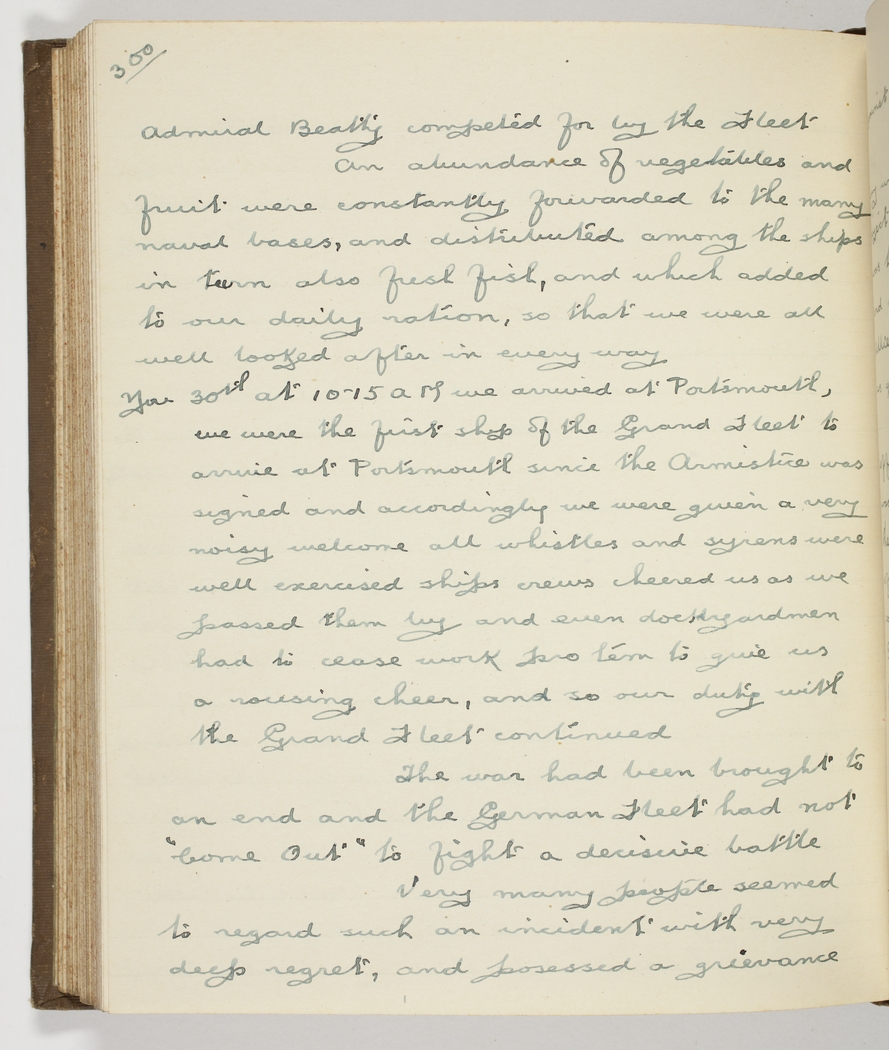 300
Admiral Beatty competed for by the Fleet
An abundance of vegetables and
fruit were constantly forwarded to the many
naval bases, and distributed among the ships
in turn also fresh fish, and which added
to our daily ration, so that we were all
well looked after in every way
Nov 30th at 10-15 AM we arrived at Portsmouth,
we were the first ship of the Grand Fleet to
arrive at Portsmouth since the Armistice was
signed and accordingly we were given a very
noisy welcome all whistles and syrens were
well exercised ships crews cheered us as we
passed them by and even dockyardmen
had to cease work pro tem to give us
a rousing cheer, and so our duty with
the Grand Fleet continued
The war had been brought to
an end and the German Fleet had not
"Come Out" to fight a decisive battle
Very many people seemed
to regard such an incident with very
deep regret, and posessed a grievance